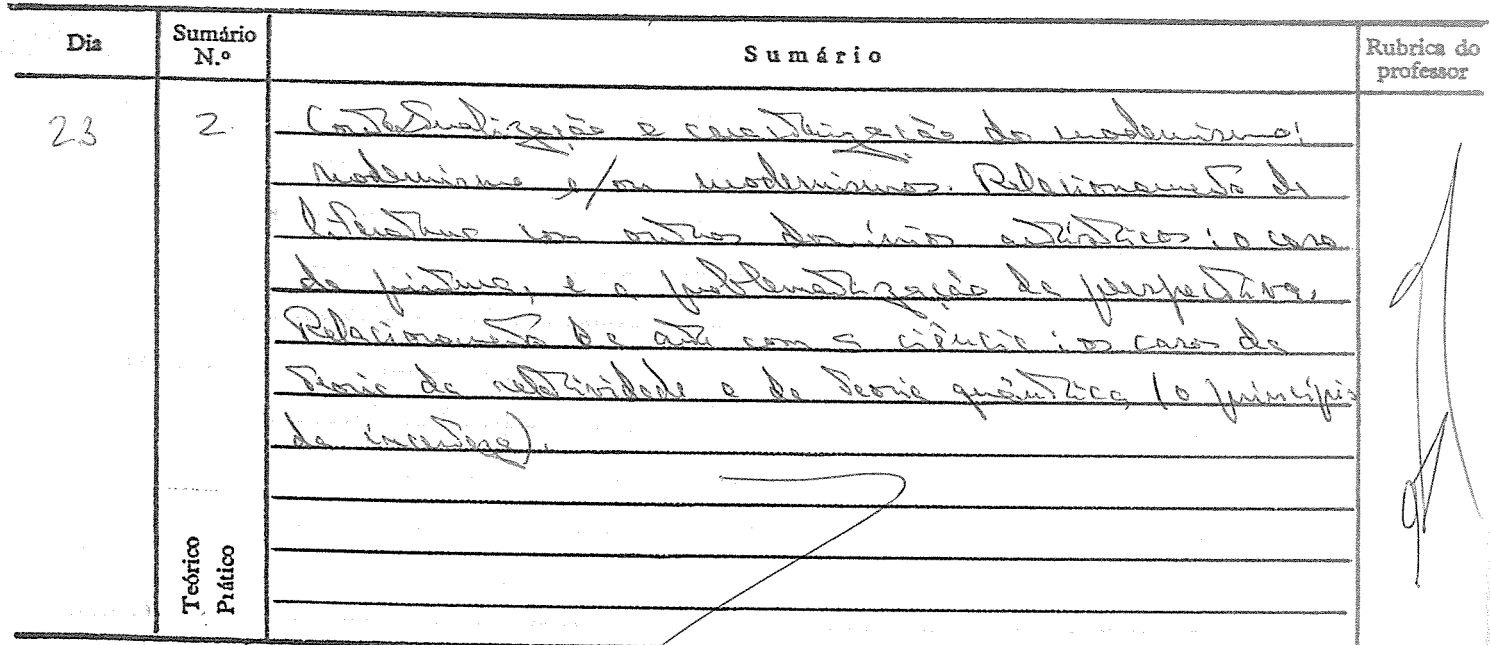 Dia
Sumário N.º
Sumário
Rubrica do professor
23
2
Contextualização e caracterização do modernismo;
modernismo e/ou modernismos. Relacionamento da
literatura com outros domínios artísticos: o caso
da pintura, e a problematização da perspectiva.
Relacionamento da arte com a ciência: os casos da
teoria da relatividade e da teoria quântica (o princípio
da incerteza).
Teórico
Prático